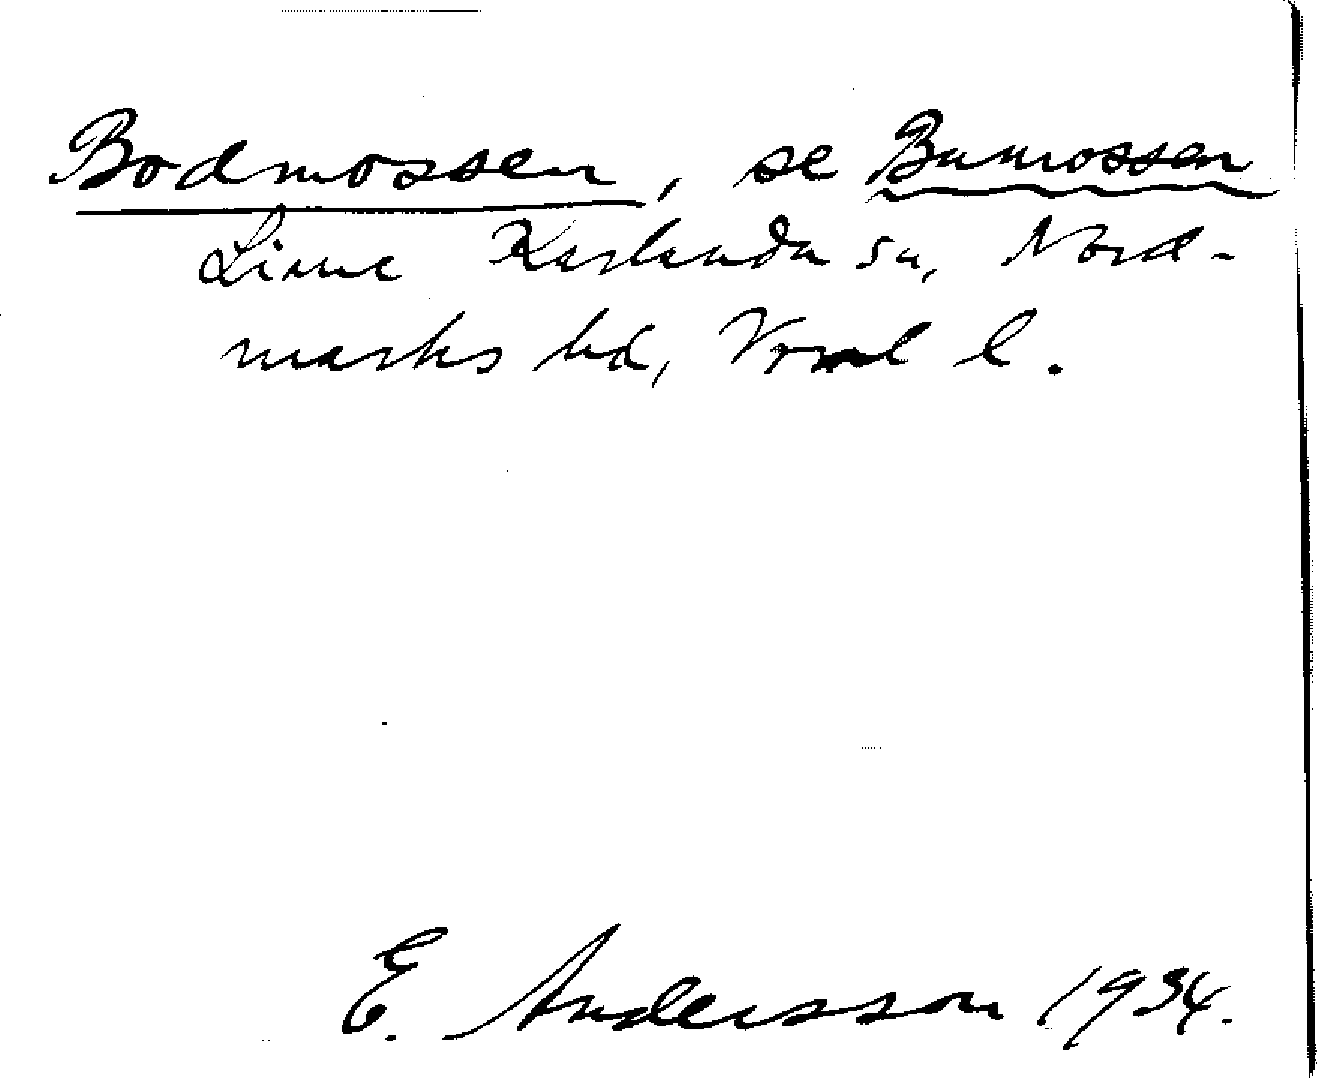 Bodmossen, se Bumossen
Karlanda sn, Nord-
marks hd, Vrml l.
E. Andersson 1934.